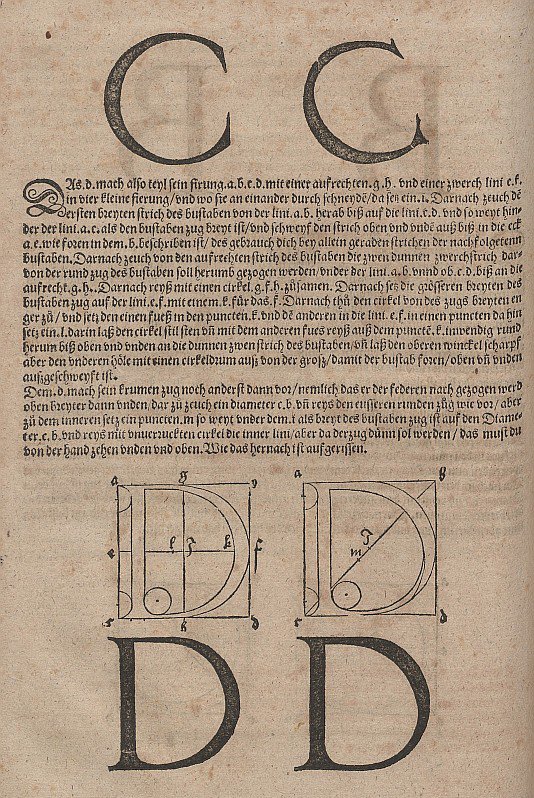 C C
DAs .d. mach also teyl sein firung .a.b.c.d. mit einer aufrechten .g.h. vnd einer zwerch lini e.f.
in vier kleine fierung / vnd wo sie an einander durch schneydē / da setz ein .i. Darnach zeuch dē
ersten breyten strich des bustaben von der lini .a.b. herab biß auf die lini .c.d. vnd so weyt hin-
der der lini .a.c. als den bustaben zug breyt ist / vnd schweyf den strich oben vnd vndē auß biß in die eck
a.c. wie foren in dem .b. beschriben ist / des gebrauch dich bey allein geraden strichen der nachfolgetenn
bustaben. Darnach zeuch von den aufrechten strich des bustaben die zwen dunnen zwerchstrich dar-
von der rund zug des bustaben soll herumb gezogen werden / vnder der lini .a.b. vnnd ob .c.d. biß an die
aufrecht .g.h.. Darnach reyß mit einen cirkel .g.f.h. züsamen. Darnach setz die grösseren breyten des
bustaben zug auf der lini .e.f. mit einem .k. für das .f. Darnach thů den cirkel von des zugs breyten en
ger zů / vnd setz den einen fueß in den puncten .k. vnd dē anderen in die lini .e.f. in einen puncten da hin
setz ein .l. darin laß den cirkel stil sten vn̄ mit dem anderen fues reyß auß dem punctē .k. inwendig rund
herum biß oben vnd vnden an die dunnen zwen strich des bustaben / vn̄ laß den oberen winckel scharpf
aber den vnderen höle mit einen cirkeldrum auß von der grosz / damit der bustab foren / oben vn̄ vnden
außgeschweyft ist.
Dem .d. mach sein krumen zug noch anderst dann vor / nemlich das er der federen nach gezogen werd
oben breyter dann vnden / dar zů zeuch ein diameter c.b. vn̄ reys den eusseren runden zůg wie vor / aber
zů dem inneren setz ein puncten .m so weyt vnder dem .i als breyt des bustaben zug ist auf den Diame-
ter .c.b. vnd reys mit vnuerruckten cirkel die inner lini / aber da der zug dünn sol werden / das must du
von der hand zehen vnden vnd oben. Wie das hernach ist aufgerissen.
a g b a b
e l i k f i m
c h d c d
D D